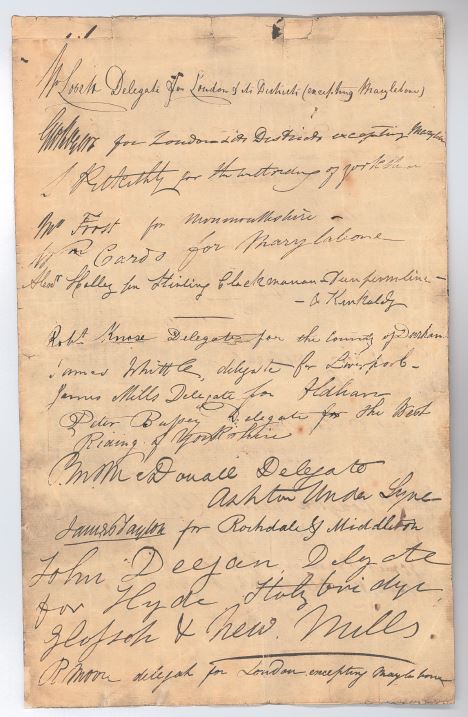 Wm Lovett Delegate for London & its Districts (excepting Marylebone)
for London & its Districts excepting Maryleb
L Pitkeithly for the westriding of yorkshire
Mr Frost for Monmouthshire
Wm Cardo for Marylabone
Alexr Halley for Stirling Clackmanan Dunfermline
& Kirkaldy
Robt Knox Delegate for the County of Durham
James Whittle, delegate for Liverpool
James Mills Delegate for Aldham
Peter Bussey Delegate for the West
Riding of Yorkshire
P. M. McDouall Delegate
Ashton Under Lyne
James Taylor for Rochdale & Middleton
John Deegan, Delegate
for Hyde, Stalybridge,
Glossop & New Mills
R Moore delegate for London excepting Maylebone